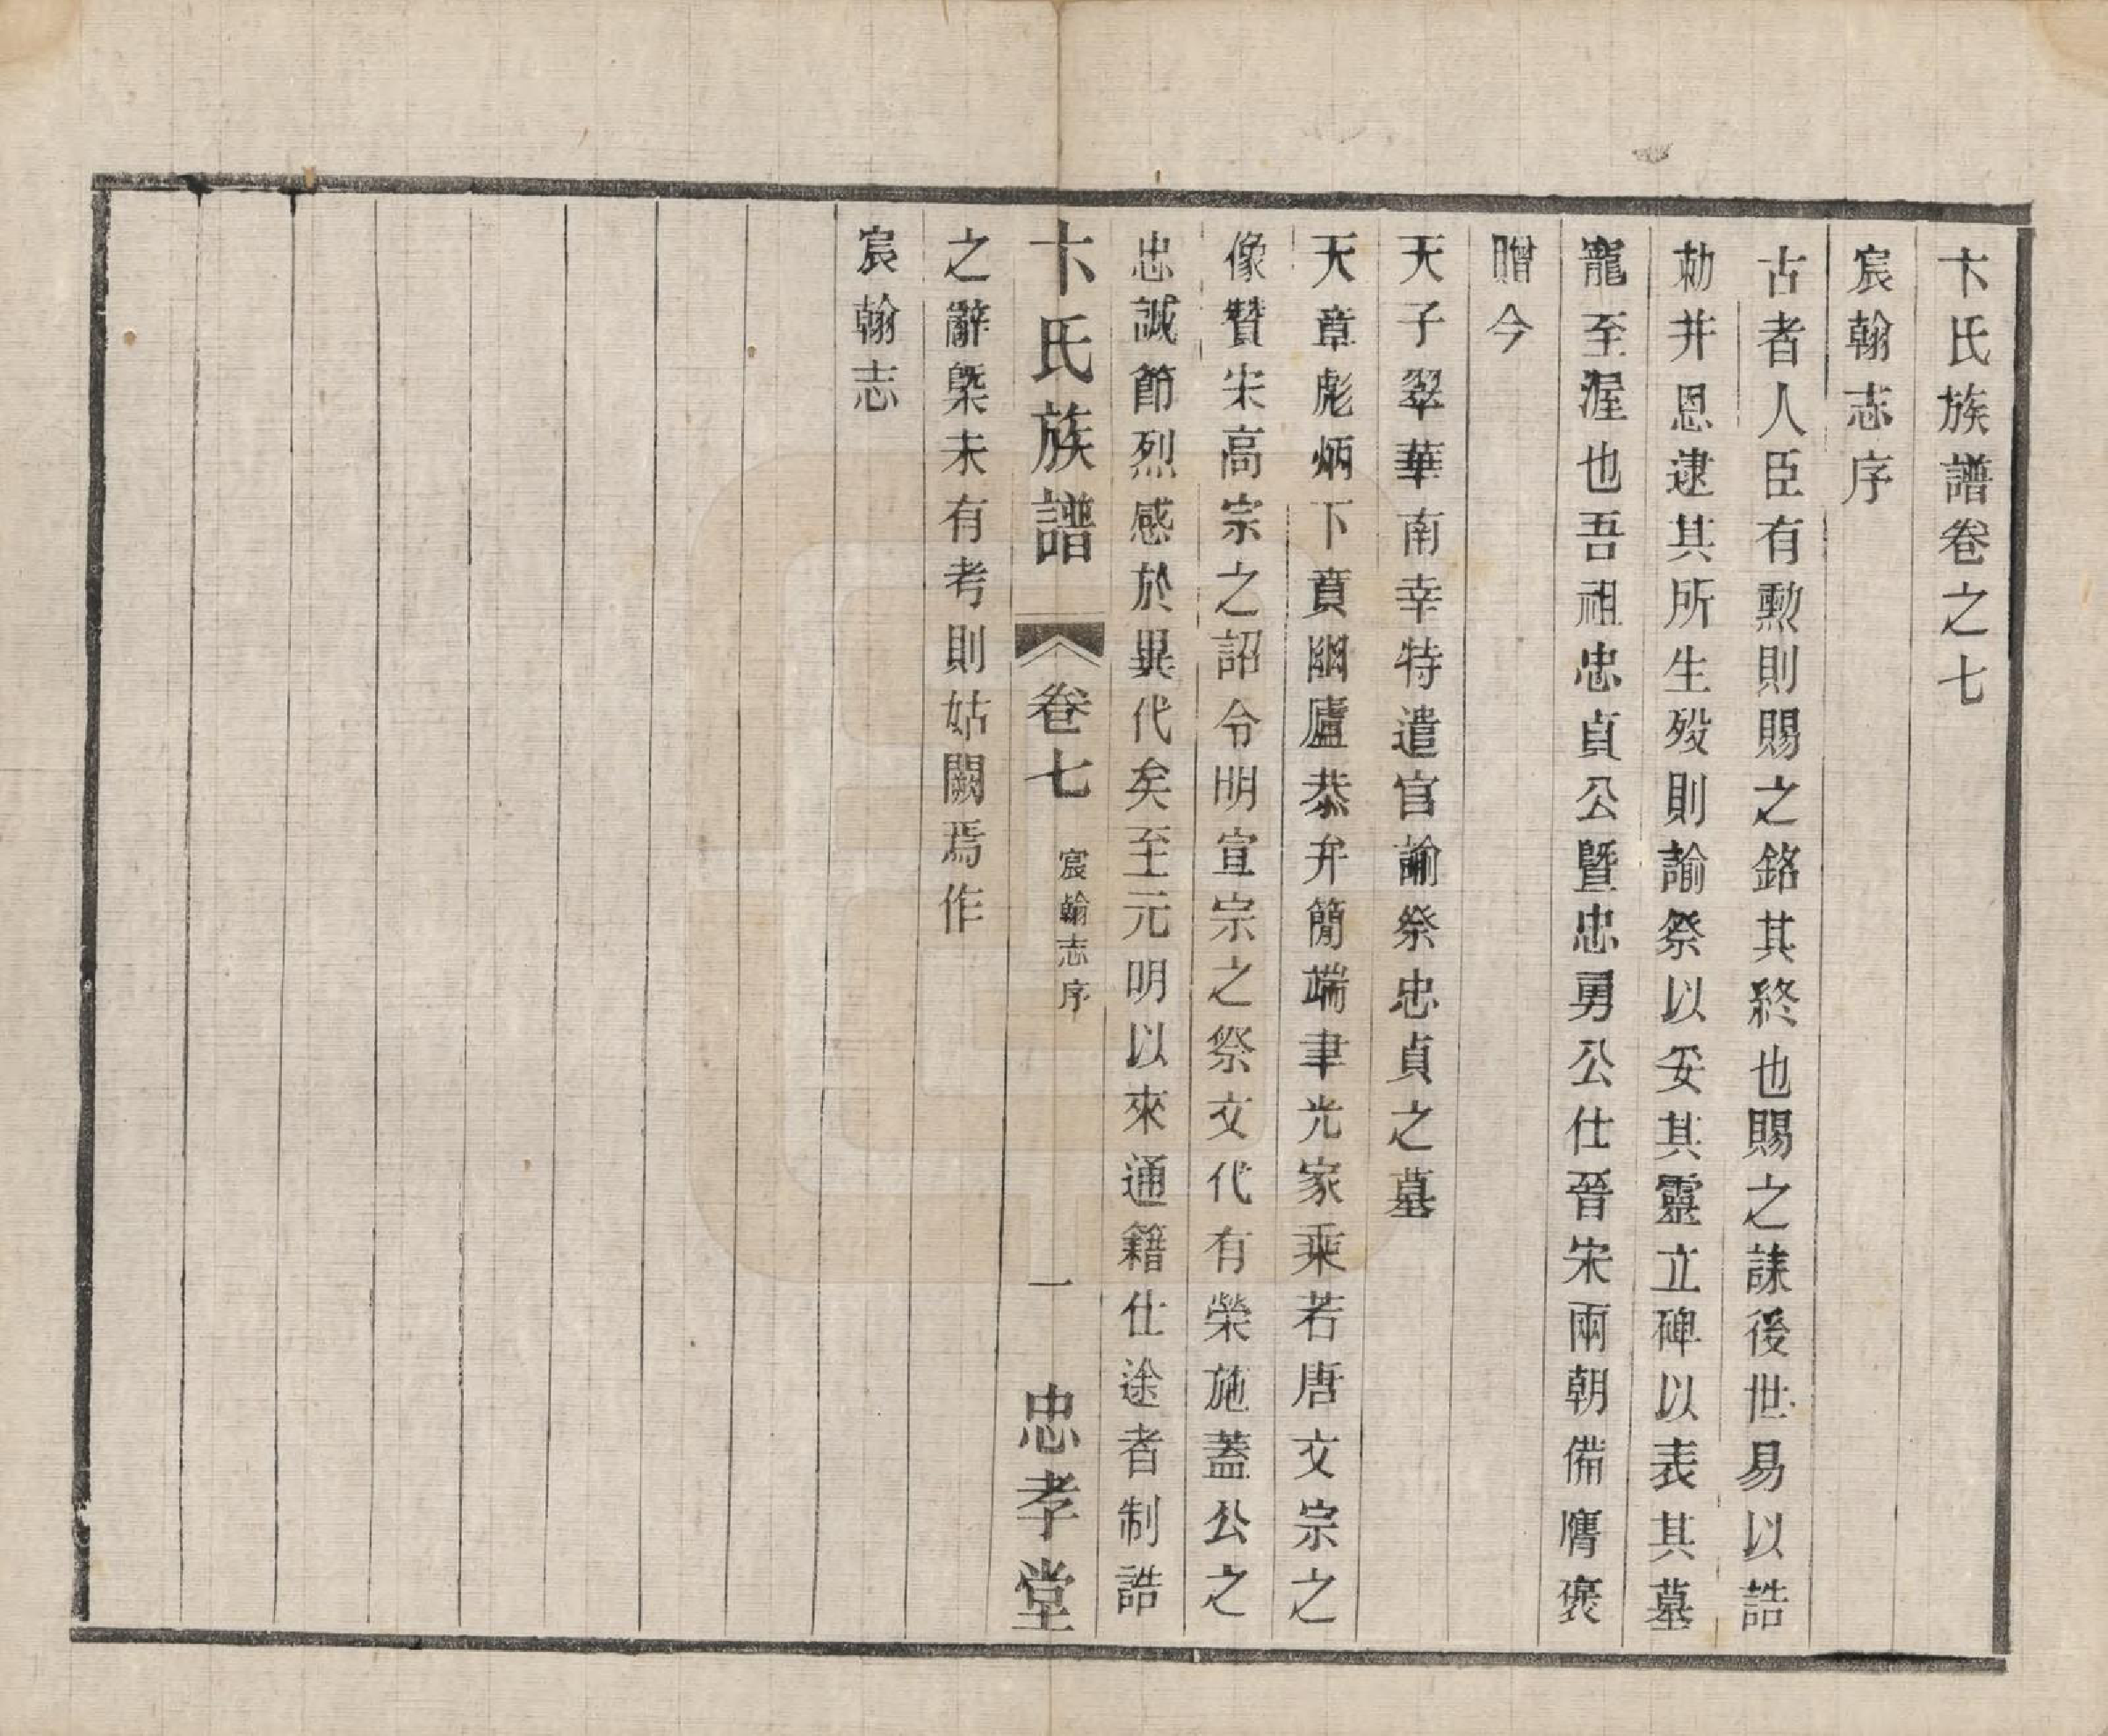 卞氏族譜卷之七
宸翰志序
古者人臣有勲則賜之銘其終也賜之誄後世易以誥
勅并恩逮其所生歿則諭祭以妥其靈立碑以表其墓
寵至渥也吾祖忠貞公曁忠勇公仕晉宋兩朝備膺褒
贈今
天子翠華南幸特遣官諭祭忠貞之墓
天章彪炳下賁幽廬恭弁簡端聿光家乘若唐文宗之
像贊宋高宗之詔令明宣宗之祭文代有榮施蓋公之
忠誠節烈感於異代矣至元明以來通籍仕途者制誥
卞氏族譜 卷七 宸翰志序 一 忠孝堂
之辭槩未有考則姑闕焉作
宸翰志